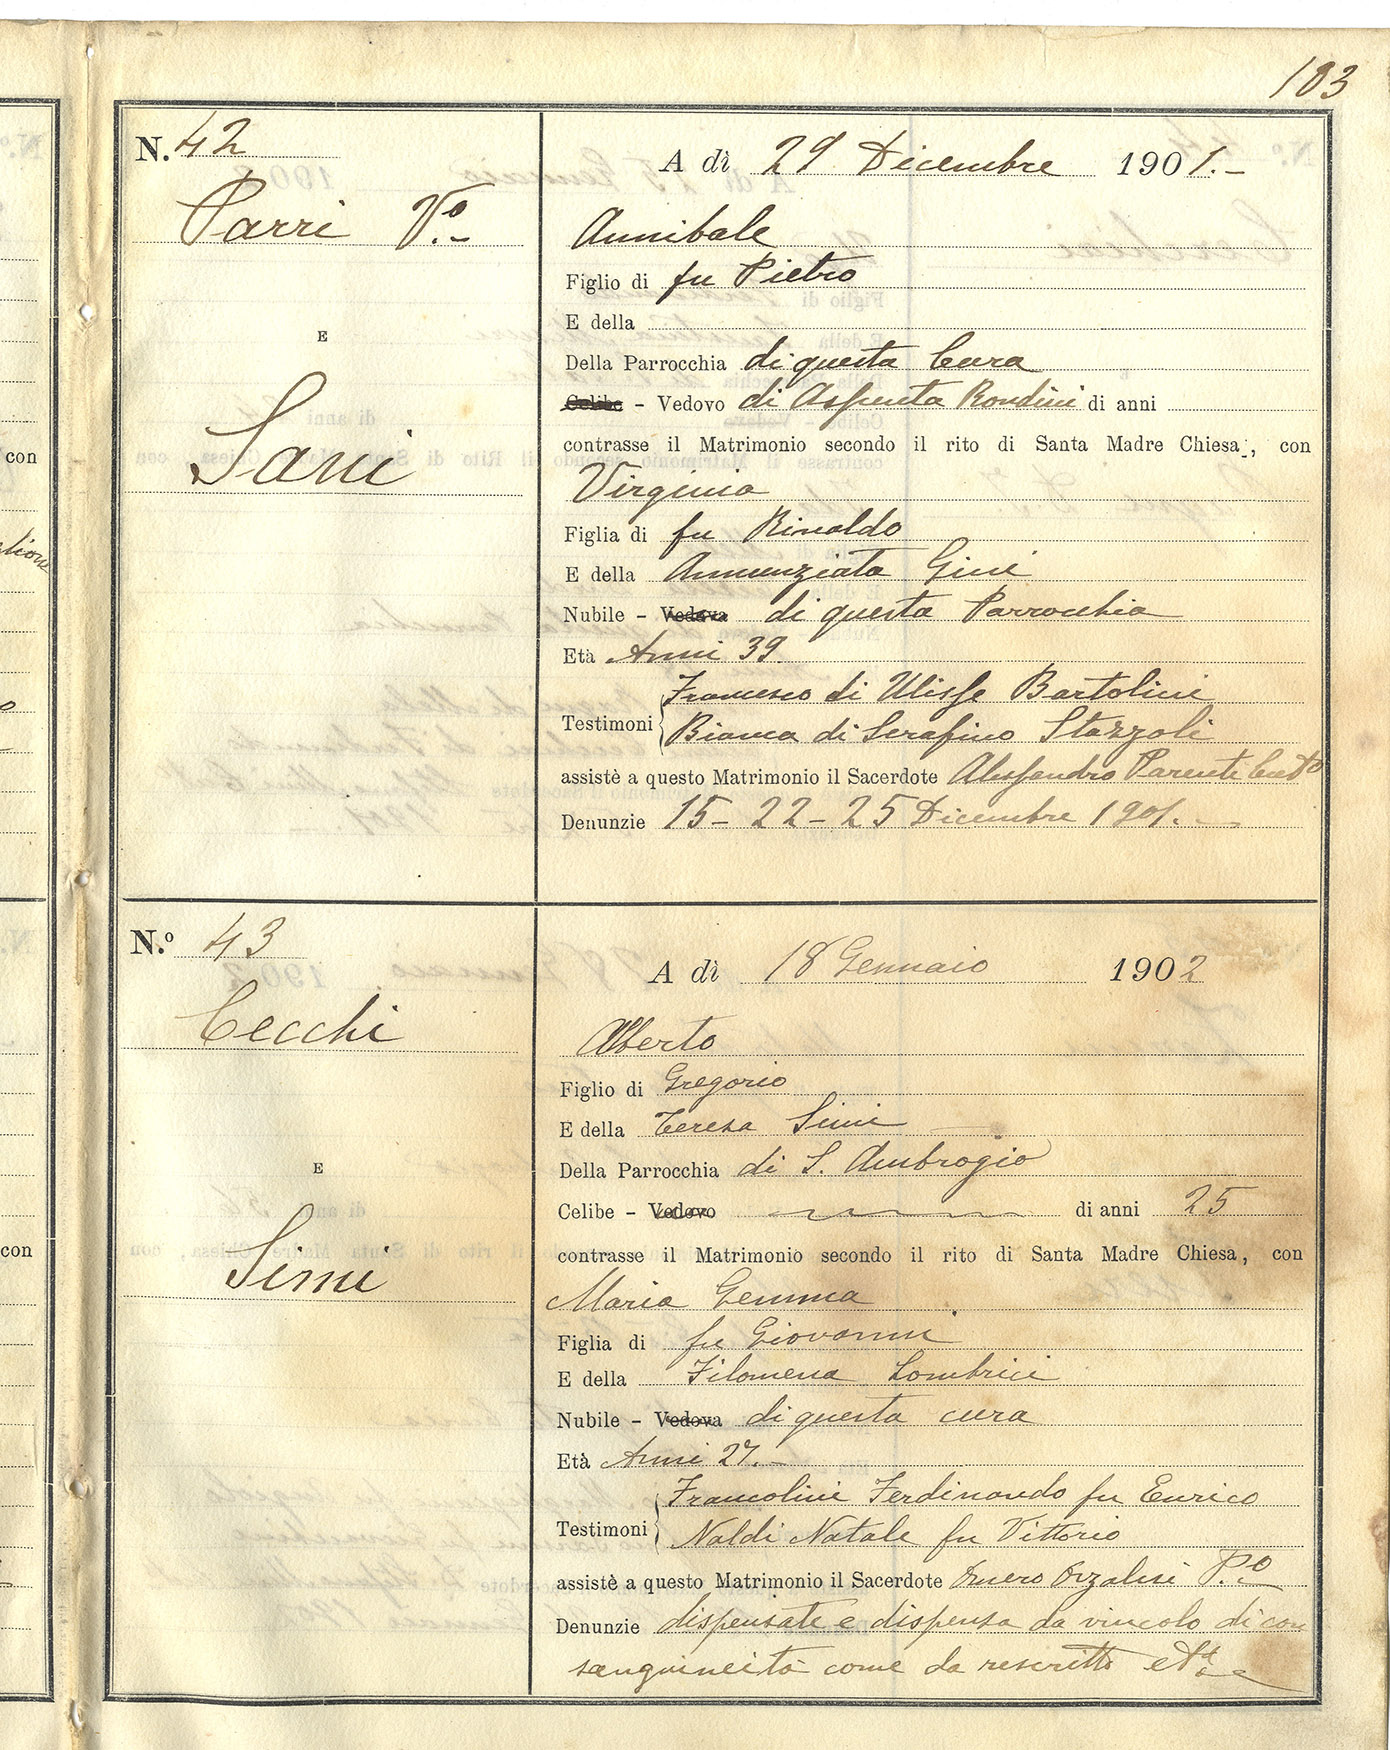 103
N. 42
A dì 29 Dicembre 1901.-
Parri V.º-
Annibale
Figlio di fu Pietro
E
E della
Della Parrocchia di questa Cura
Celibe - Vedovo di Assunta Rondini di anni
Sani
contrasse il Matrimonio secondo il rito di Santa Madre Chiesa, con
Virginia
Figlia di fu Rinaldo
E della Annunziata Gini
Nubile - Vedova di questa Parrocchia
Età Anni 39.
Francesco di Ulisse Bartolini
Testimoni
Bianca di Serafino Stazzoli
assistè a questo Matrimonio il Sacerdote Alessandro Parenti
Denunzie 15 - 22 - 25 Dicembre 1901. -
N.º 43
A dì 18 Gennaio 1902
Cecchi
Alberto
Figlio di Gregorio
E della Teresa Simi
E
Della Parrocchia di S. Ambrogio
Celibe - Vedovo di anni 25
Simi
contrasse il Matrimonio secondo il rito di Santa Madre Chiesa, con
Maria Gemma
Figlia di fu Giovanni
E della Filomena Lombrici
Nubile - Vedova di questa cura
Età Anni 27.-
Francolini Ferdinando fu Enrico
Testimoni
Naldi Natale fu Vittorio
assistè a questo Matrimonio il Sacerdote Omero Orzalesi P.º
Denunzie dispensate e dispensa da vincolo di con
sanguineità come da rescritto
con
con